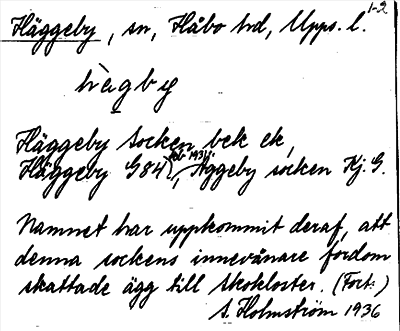 1-2
Häggeby, sn, Håbo hd, Upps. l.
hạ̈gby
Häggeby socken bek ek,
Häggeby G84, Äggeby socken Kj. G.
Namnet har uppkommit deraf, att
denna sockens innevånare fordom
skattade ägg till Skokloster. (Forts.)
S. Holmström 1936